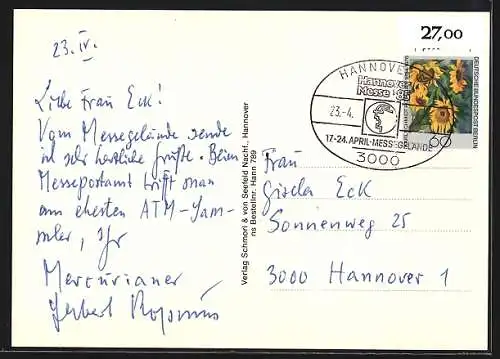 27,00
23. IV.
Liebe Frau Eck!
Vom Messegelände sende
ich sehr herzliche Grüße. Beim
Messepostamt trifft man
am ehesten ATM-Sam-
mler, Ihr
Mercurianer
Herbert
Verlag Schmorl & von Seefeld Nachf., Hannover
ns Bestellnr. Hann 789
HANNOVER
Hannover
Messe
23.-4.
17-24. APRIL-MESSEGELÄNDE
3000
DEUTSCHE BUNDESPOST BERLIN
60
Frau
Gisela Eck
Sonnenweg 25
3000 Hannover 1